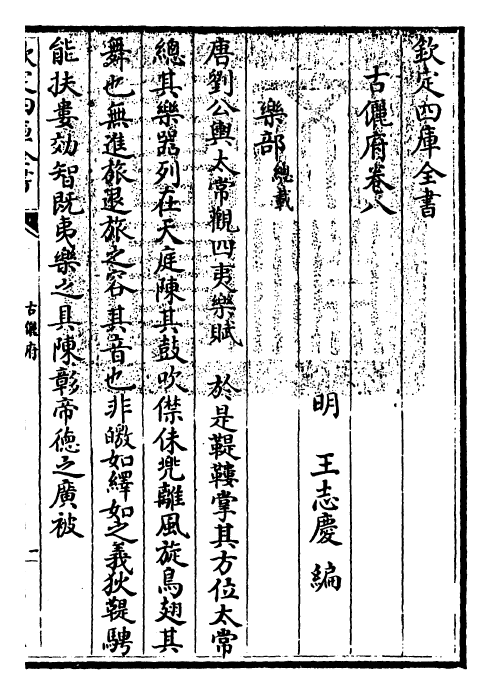 欽定四庫全書
古儷府卷八
明 王志慶 編
樂部總載
唐劉公輿太常觀四夷樂賦 於是鞮鞻掌其方位太常
總其樂器列在天庭陳其鼓吹僸佅兠離風旋鳥翅其
舞也無進旅退旅之容其音也非皦如繹如之義狄鞮騁
能扶婁効智既夷樂之具陳彰帝德之廣被
欽定四庫全書
古儷府
二